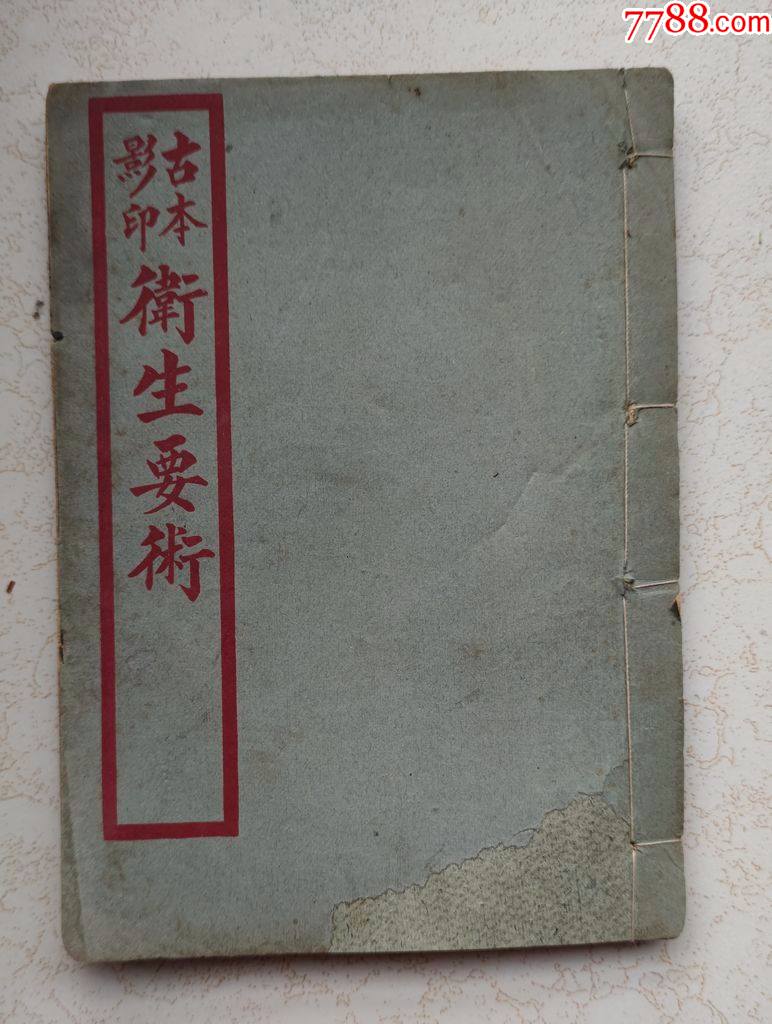 7788.com
古本
影印
衛生要術